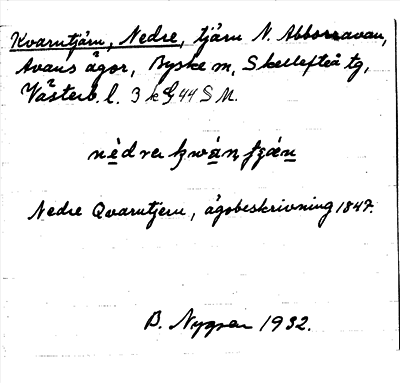 Kvarntjärn, Nedre, tjärn N. Abborravan,
Avans ägor, Byske sn, Skellefteå tg,
Västerb. l. 3 k 44 S M.
nèdrer kwánṇ ṭjǽn
Nedre Qvarntjern, ägobeskrivning 1847.
B. Nygren 1932.